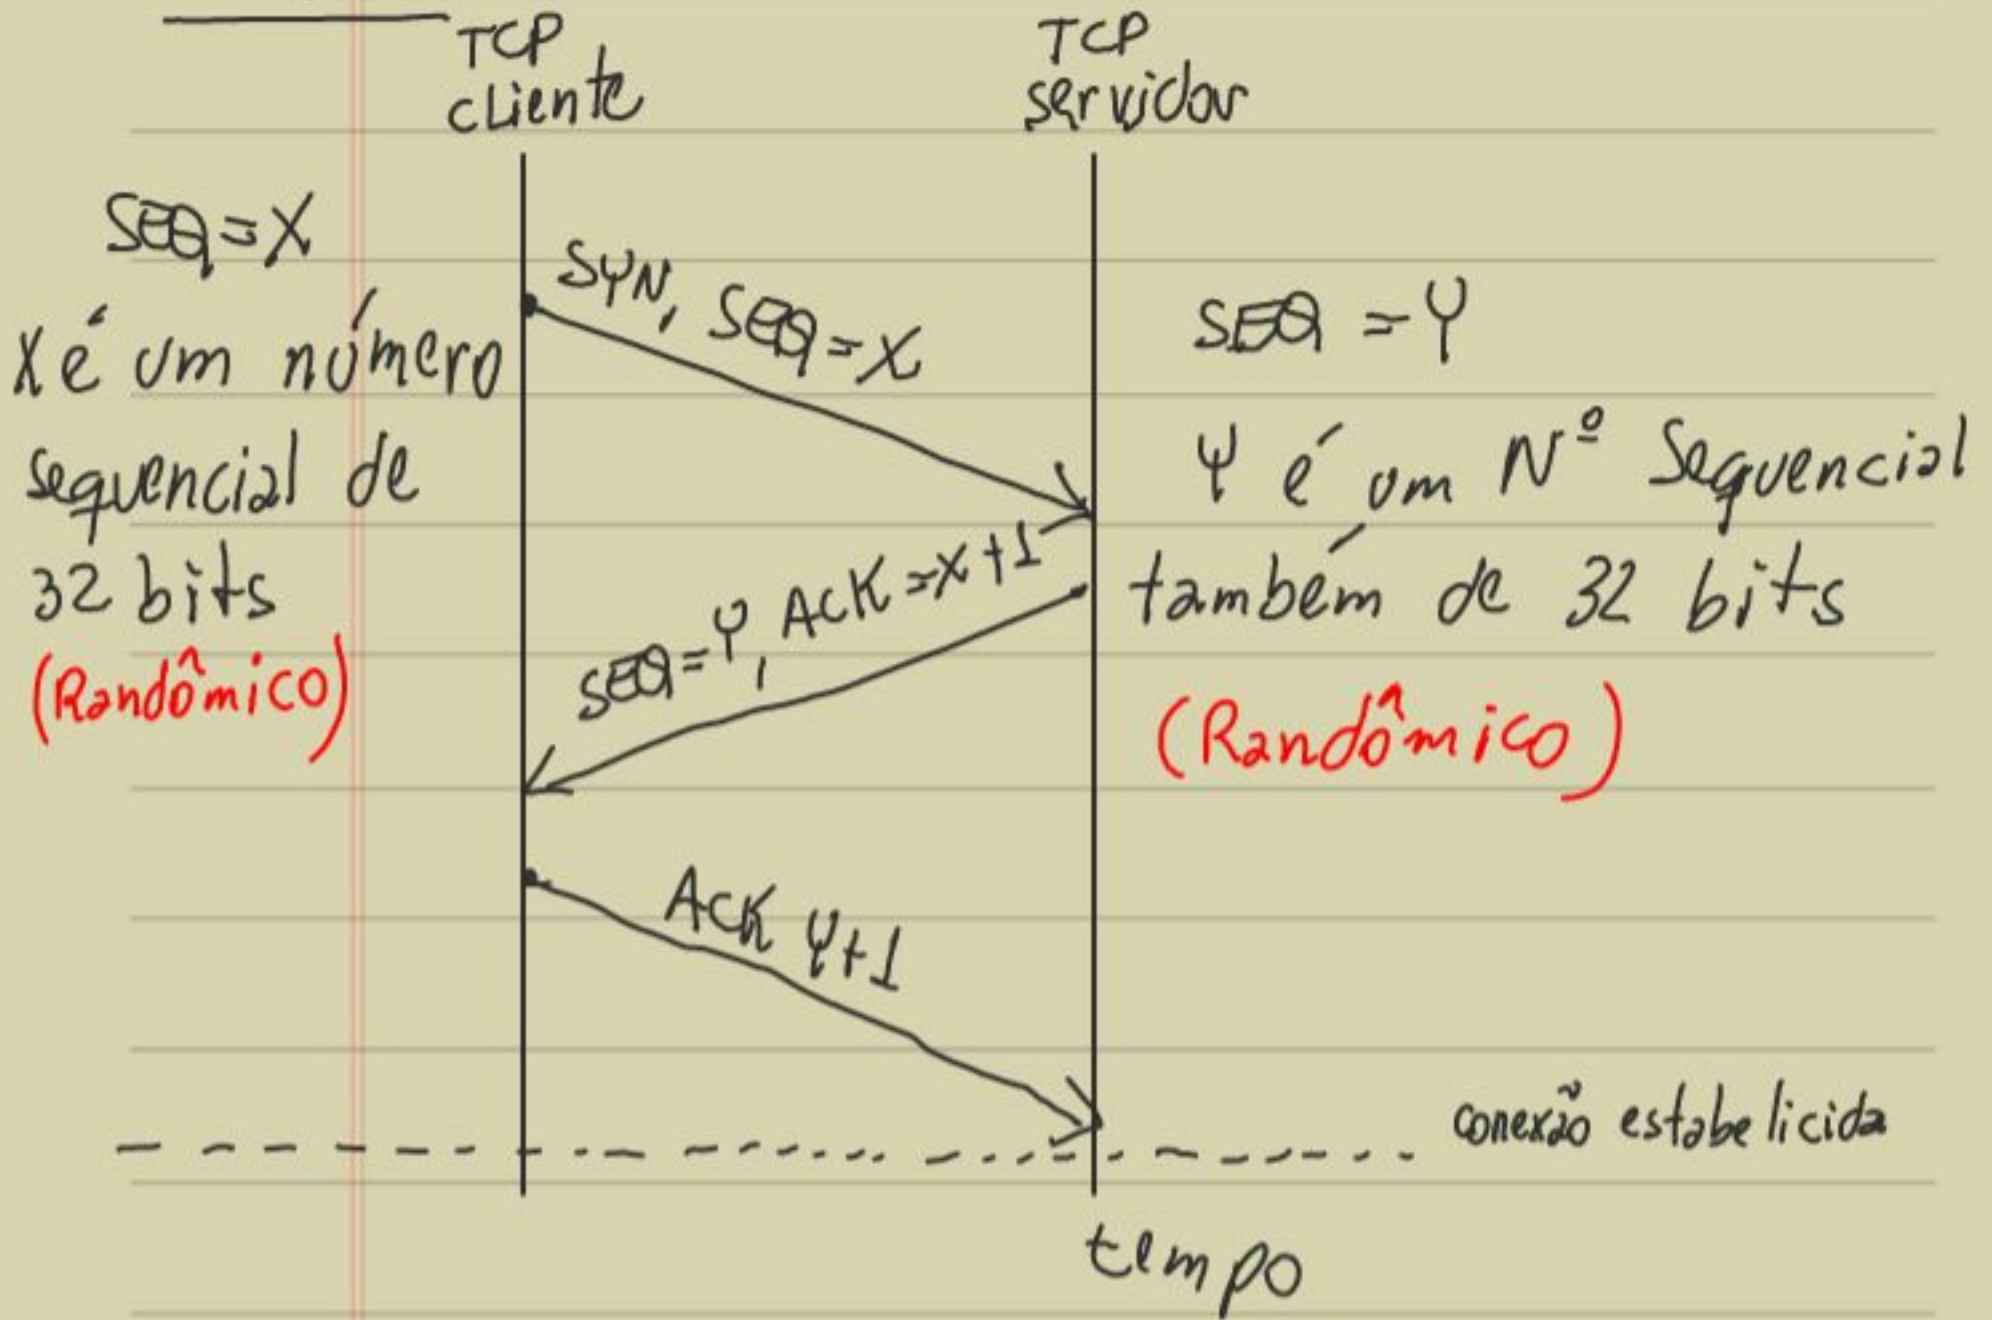 TCP
cliente
TCP
servidor
SEQ=X
X é um número
sequencial de
32 bits
(Randômico)
SYN, SEQ=X
SEQ=Y, ACK=X+1
ACK Y+1
SEQ=Y
Y é um Nº Sequencial
também de 32 bits
(Randômico)
conexão estabelicida
tempo